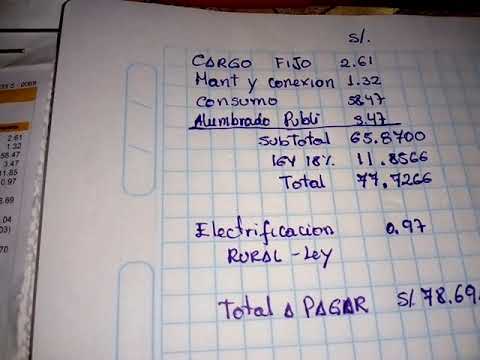 S/.
CARGO FIJO 2.61
Mant y conexion 1.32
Consumo 58.47
Alumbrado Publi 3.47
SubTotal 65.8700
IGV 18% 11.8566
Total 77.7266
Electrificacion 0.97
RURAL - Ley
Total A PAGAR S/. 78.69
2.61
1.32
58.47
3.47
11.85
0.97